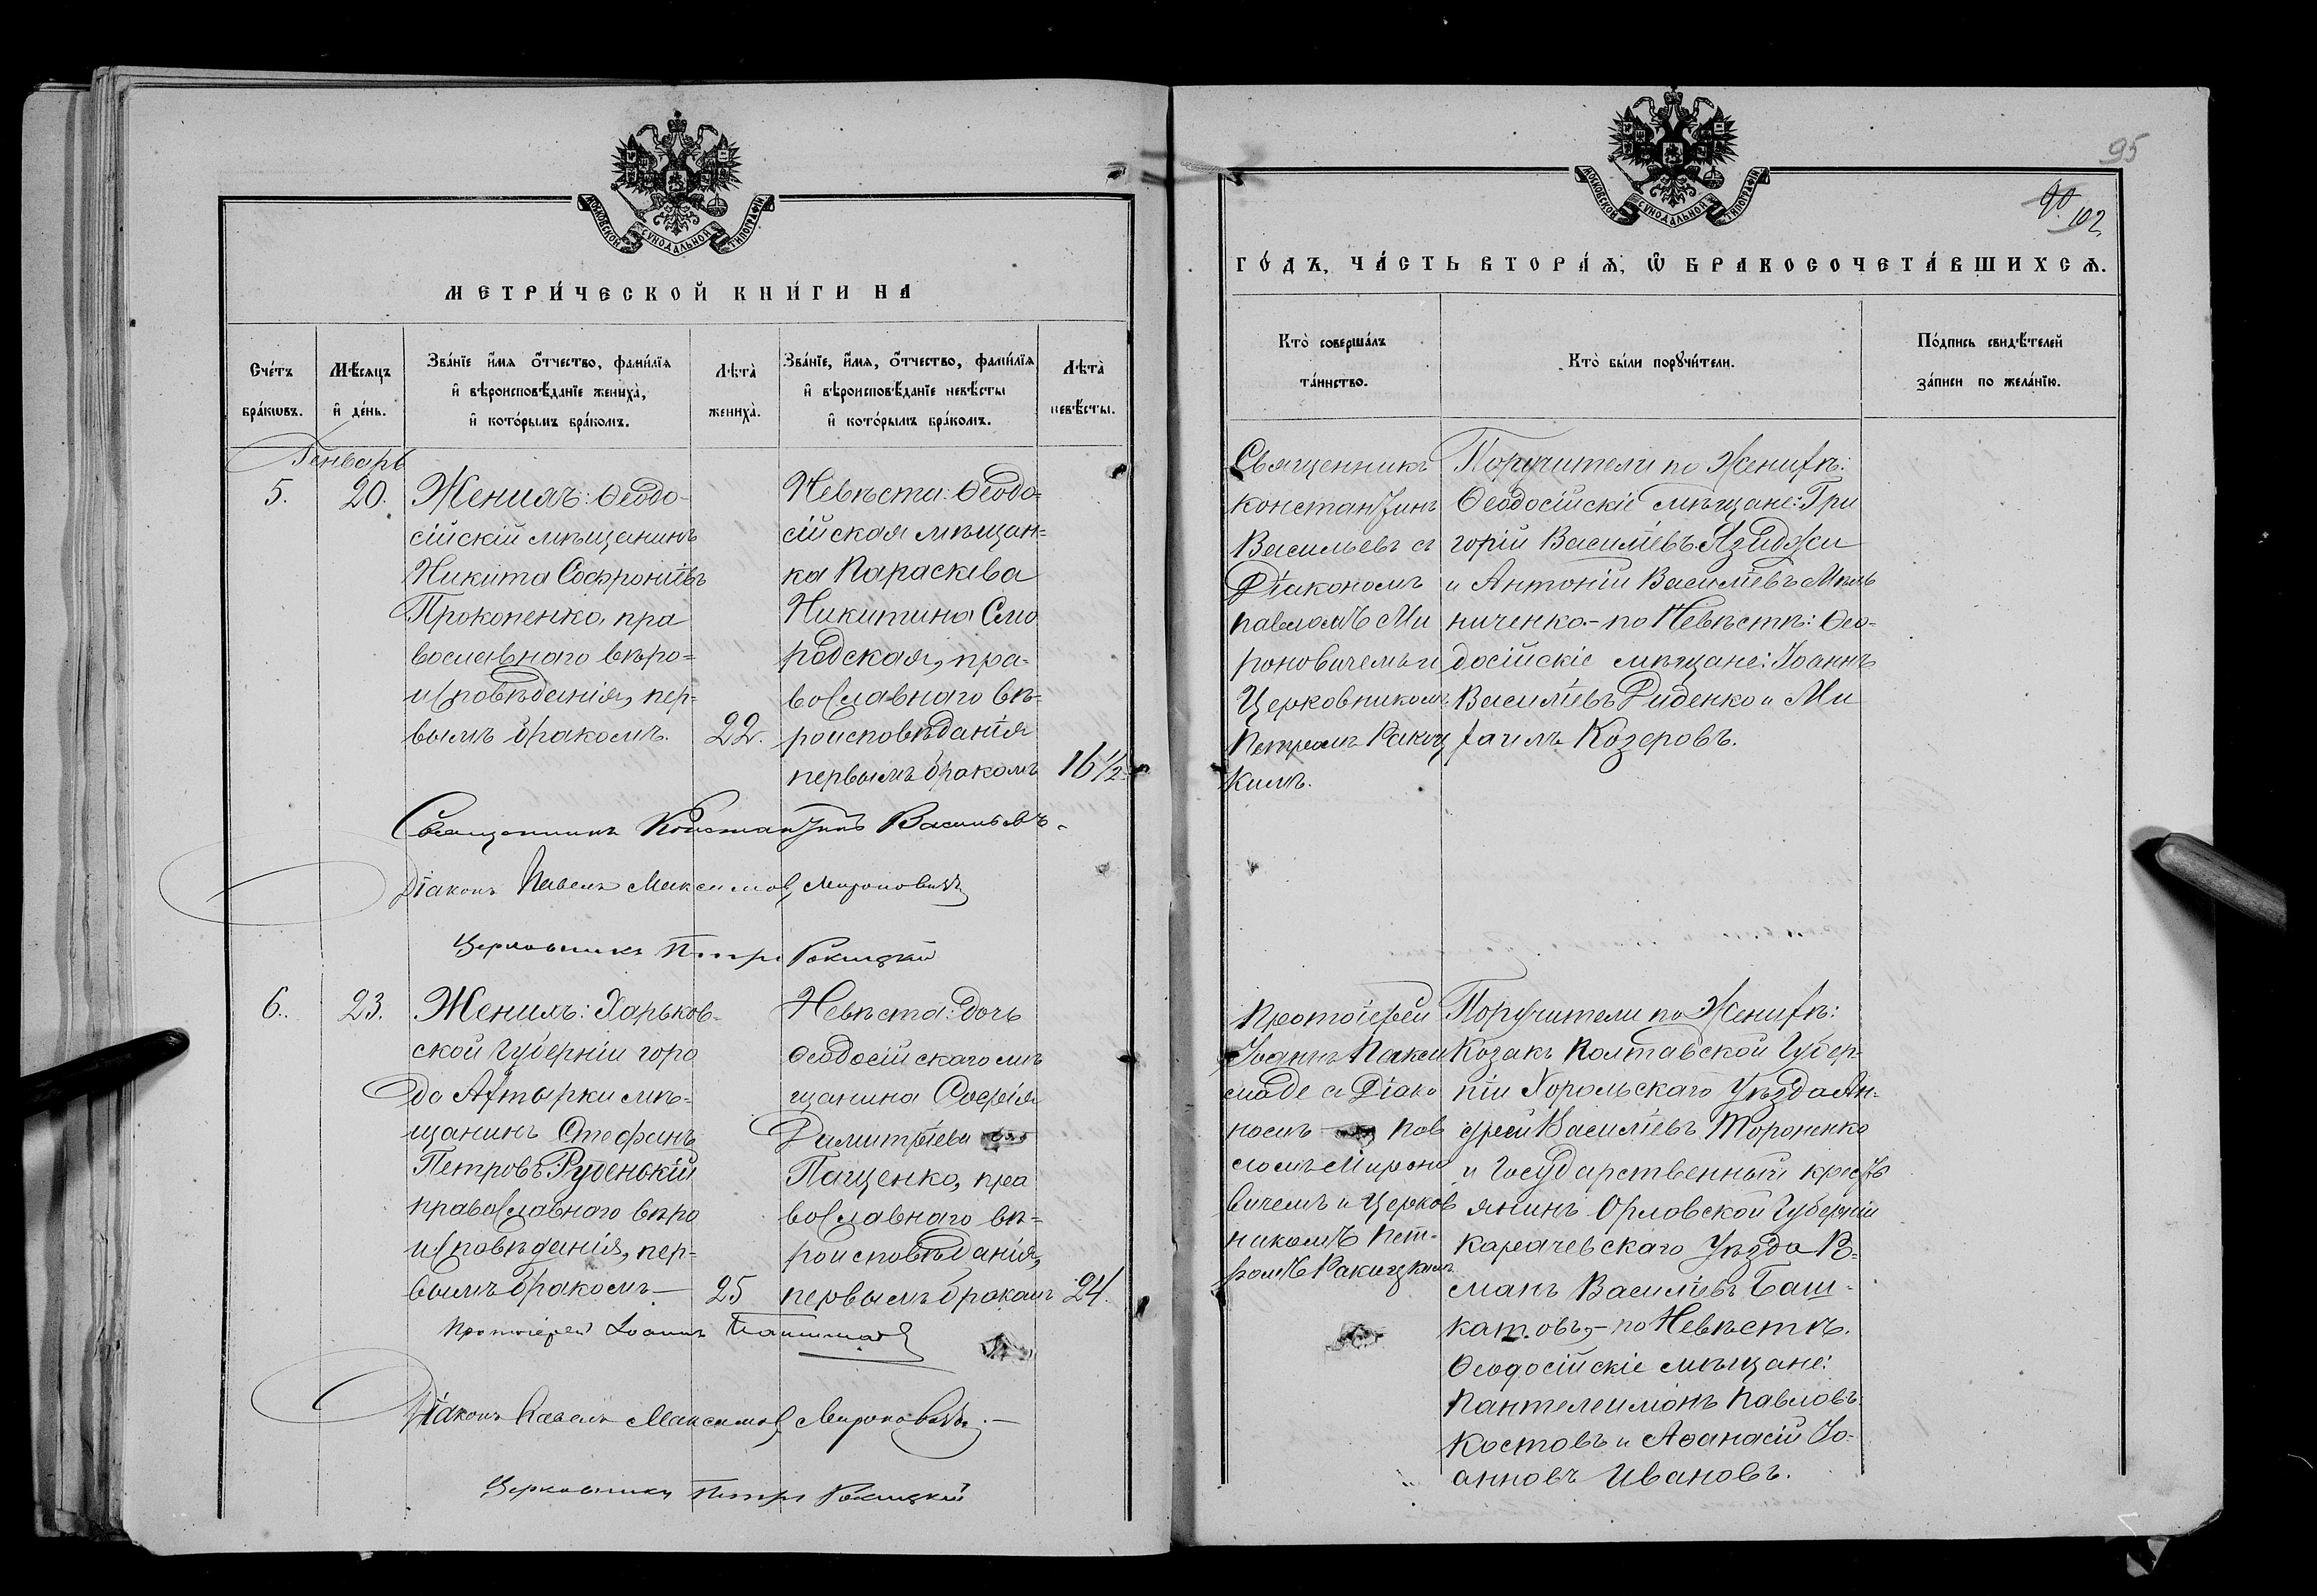 МОСКОВСКОЙ СѴНОДАЛЬНОЙ ТИПОГРАФІИ
МЕТРИ́ЧЕСКОЙ КНИ́ГИ НА
Сче́тъ бра́кѡвъ.
Мѣ́сяцъ и҆ де́нь.
Зва́нїе и҆́мя ѻ҆́тчество, фами́лїя
и҆ вѣроисповѣ́данїе жениха̀,
и҆ кото́рымъ бра́комъ.
Лѣта̀ жениха̀.
Зва́нїе, и҆́мя, ѻ҆́тчество, фами́лїя
и҆ вѣроисповѣ́данїе невѣ́сты
и҆ кото́рымъ бра́комъ.
Лѣта̀ невѣ́сты.
Генварь
5.
20.
Женихъ: Ѳеодо-
сійскій мѣщанинъ
Никита Софроніевъ
Прокопенко, пра
вославнаго вѣро=
исповѣданія, пер-
вымъ бракомъ.
22.
Невѣста: Ѳеодо=
сійская мѣщан=
ка Параскева
Никитина Смо
родская, пра-
вославнаго вѣ-
роисповѣданія
первымъ бракомъ
16 1/2
Священникъ Константинъ Васильевъ.
Діаконъ Павелъ Максимовъ Мироновичъ
Церковникъ Петръ Ракицкій
6.
23.
Женихъ: Харьков-
ской Губерніи горо
да Ахтырки мѣ-
щанинъ Стефанъ
Петровъ Руденскій
православнаго вѣро
исповѣданія, пер-
вымъ бракомъ—
25
Невѣста: дочь
Ѳеодосійскаго мѣ
щанина Софія
Димитріева
Пащенко, пра
вославнаго вѣ=
роисповѣданія,
первымъ бракомъ
24.
Протоіерей Іоаннъ
Діаконъ Павелъ Максимовъ Мироновичъ.—
Церковникъ Петръ Ракицкій
95
90
102
МОСКОВСКОЙ СѴНОДАЛЬНОЙ ТИПОГРАФІИ
ГО́ДЪ, ЧА́СТЬ ВТОРА́Я, Ѽ БРАКОСОЧЕТА́ВШИХСЯ.
Кто̀ соверша́лъ
та́инство.
Кто̀ бы́ли порꙋчи́тели.
По́дпись свидѣ́телей
за́писи по жела́нїю.
Священникъ
Константинъ
Васильевъ съ
Діакономъ
Павломъ Ми
роновичемъ и
Церковникомъ
Петромъ Ракиц
кимъ.
Поручители по Женихѣ:
Ѳеодосійскіе мѣщане: Гри
горій Василіевъ Язиджи
и Антоній Василіевъ Мель
ниченко.- по Невѣстѣ: Ѳео-
досійскіе мѣщане: Іоаннъ
Василіевъ Диденко и Ми
хаилъ Козеровъ.
Протоіерей
Іоаннъ
съ Діако
номъ Пав
ломъ Мироно
вичемъ и Церков
никомъ Пет-
ромъ Ракицкимъ
Поручители по Женихѣ:
Козакъ Полтавской Губер-
ніи Хорольскаго Уѣзда Ан-
дрей Василіевъ Тороненко
и Государственный кресть
янинъ Орловской Губерніи
Карачевскаго Уѣзда Ро-
манъ Василіевъ Баш-
катовъ,- по Невѣстѣ.
Ѳеодосійскіе мѣщане:
Пантелеимонъ Павловъ
Костовъ и Аѳанасій Іо-
анновъ Ивановъ.